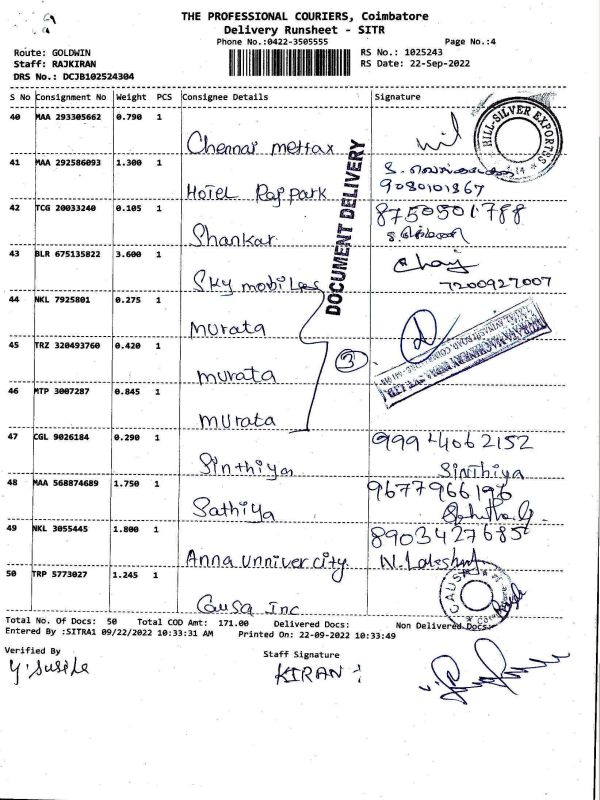 THE PROFESSIONAL COURIERS, Coimbatore
Delivery Runsheet - SITR
Phone No.:0422-3505555 Page No.:4
Route: GOLDWIN RS No.: 1025243
Staff: RAJKIRAN RS Date: 22-Sep-2022
DRS No.: DCJB102524304
S No Consignment No Weight PCS Consignee Details Signature
40 MAA 293305662 0.790 1
Chennai mettax
HILL-SILVER EXPORTES
41 MAA 292586093 1.300 1
Hotel Raj park 9080101367
42 TCG 20033240 0.105 1 8750501788
Shankar
43 BLR 675135822 3.600 1
Sky mobiles 7200927007
DOCUMENT DELIVERY
44 NKL 7925801 0.275 1
murata
45 TRZ 320493760 0.420 1
murata
3
46 MTP 3007287 0.845 1
murata
47 CGL 9026184 0.290 1 9994062152
Sinthiya Sinthiya
48 MAA 568874689 1.750 1 9677966196
Sathiya
49 NKL 3055445 1.800 1 8903427685
Anna unnivercity. N. Lakshmi
50 TRP 5773027 1.245 1
Causa Inc
CAUSA
Total No. Of Docs: 50 Total COD Amt: 171.00 Delivered Docs: Non Delivered Docs:
Entered By :SITRA1 09/22/2022 10:33:31 AM Printed On: 22-09-2022 10:33:49
Verified By Staff Signature
Y. Susila KIRAN